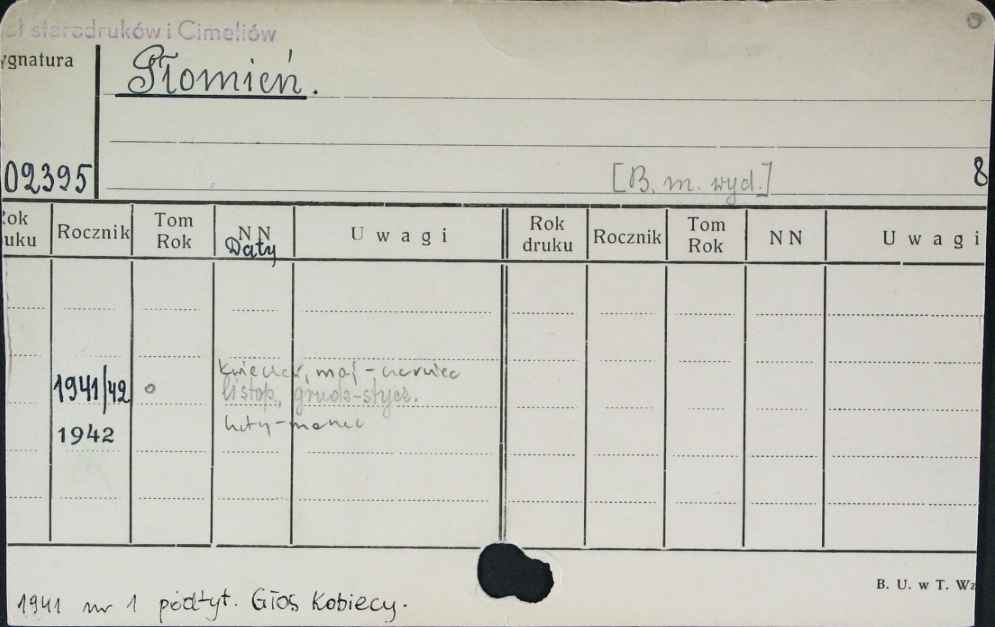 ał starodruków i Cimeliów
ygnatura
Płomień.
02395
[B. m. wyd.]
8
Rok druku Rocznik Tom Rok NN Daty Uwagi Rok druku Rocznik Tom Rok NN Uwagi
kwiecień, maj-czerwiec
1941/42 listop., grudz-stycz.
1942 luty-marzec
B. U. w T. Wz
1941 nr 1 podtyt. Głos Kobiecy.